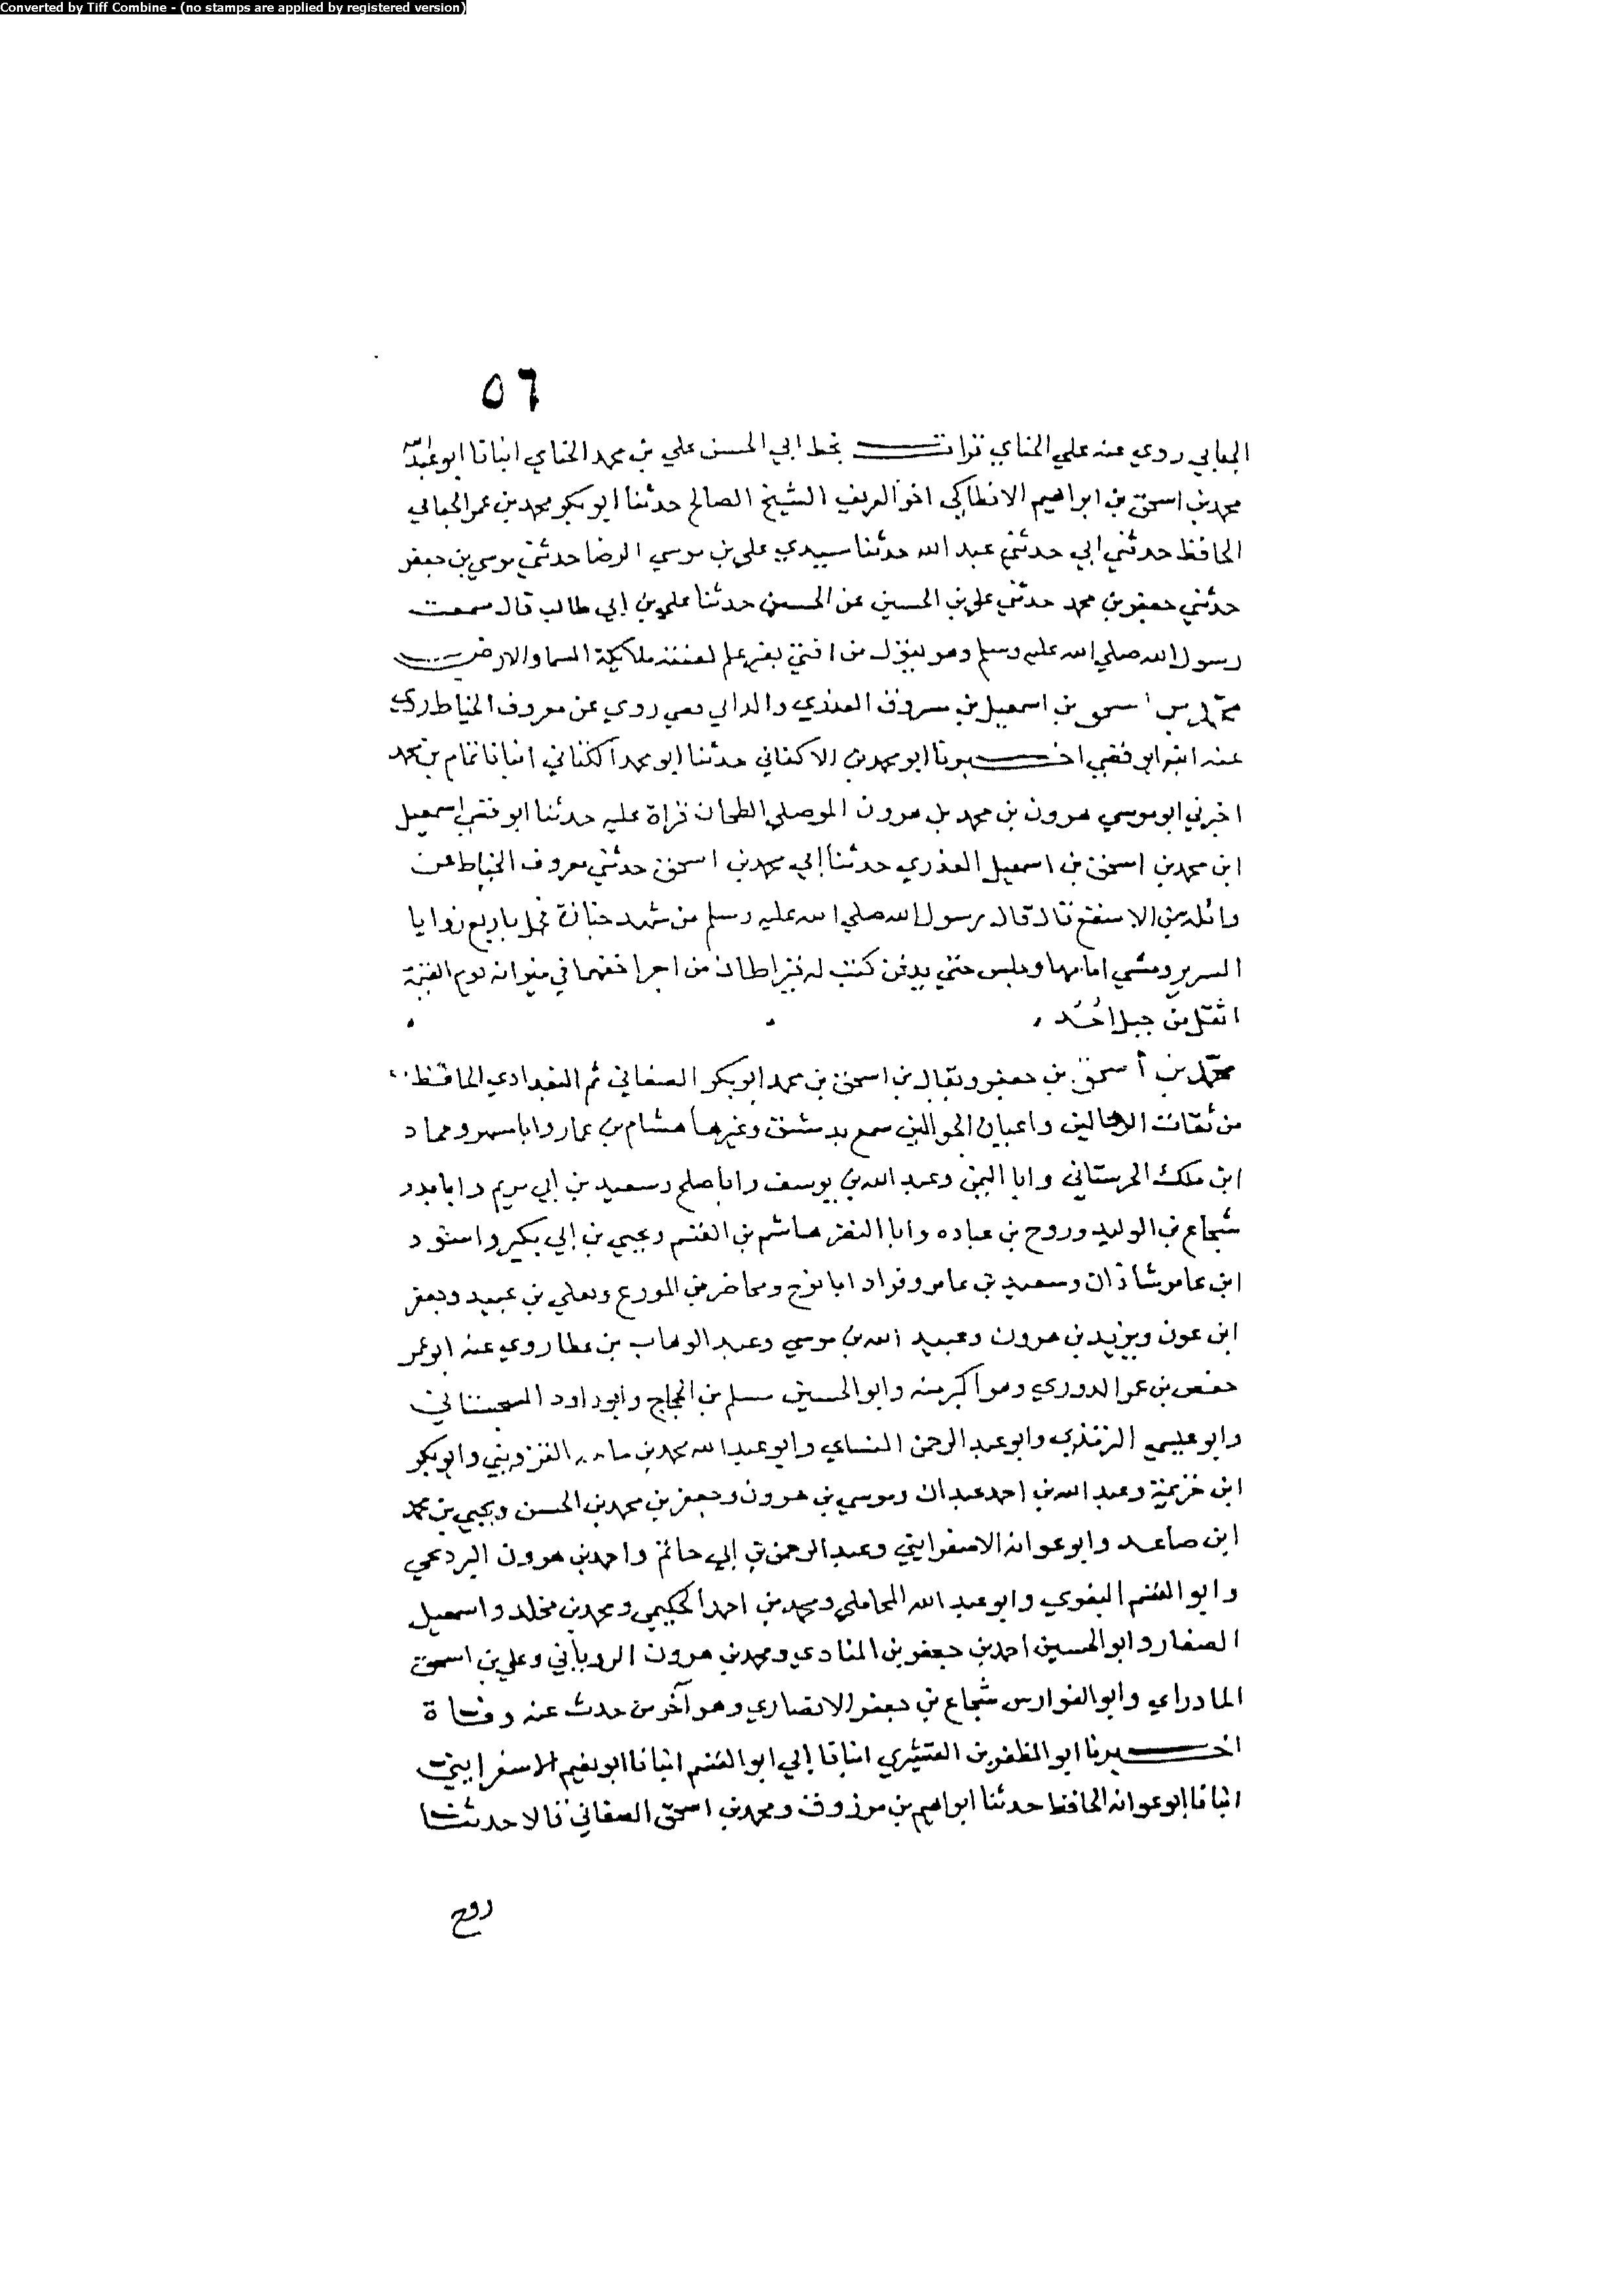 Converted by Tiff Combine - (no stamps are applied by registered version)
٥٦
الجعابي روي عنه علي الحناي قرات بخط ابي الحسن علي بن محمد الحناي انبانا ابو عبد الله
محمد بن اسحق بن ابراهيم الانطاكي اخو العريف الشيخ الصالح حدثنا ابو بكر محمد بن عمر الجعابي
الحافظ حدثني ابي حدثني عبد الله حدثنا سيدي علي بن موسي الرضا حدثني موسي بن جعفر
حدثني جعفر بن محمد حدثني علي بن الحسين عن الحسين حدثنا علي بن ابي طالب قال سمعت
رسول الله صلي الله عليه وسلم وهو يقول من افتي بغير علم لعنته ملايكة السما والارض
محمد بن اسحق بن اسمعيل بن مسروق العذري والد ابي قصي روي عن معروف الخياط روي
عنه ابنه ابو قصي اخبرنا ابو محمد بن الاكفاني حدثنا ابو محمد الكتاني انبانا تمام بن محمد
اخبرني ابو موسي هرون بن محمد بن هرون الموصلي الطحان قراة عليه حدثنا ابو قصي اسمعيل
ابن محمد بن اسحق بن اسمعيل العذري حدثنا ابي محمد بن اسحق حدثني معروف الخياط عن
واثلة بن الاسقع قال قال رسول الله صلي الله عليه وسلم من شهد جنازة فحمل باربع زوايا
السرير ومشي امامها وجلس حتي يدفن كتب له قيراطان من اجر اخفهما في ميزانه يوم القيمة
اثقل من جبل احُد
محمد بن اسحق بن جعفر ويقال بن اسحق بن محمد ابو بكر الصغاني ثم البغدادي الحافظ
من ثقات الرحالين واعيان الجوالين سمع بدمشق وغيرها هشام بن عمار وابا مسهر وحماد
ابن ملك الحرستاني وابا اليمن وعبد الله بن يوسف وابا صلح وسعيد بن ابي مريم وابا بدر
شجاع بن الوليد وروح بن عباده وابا النضر هاشم بن القسم ويحيي بن ابي بكير واسود
ابن عامر شاذان وسعيد بن عامر وقراد ابا نوح ومحاضر بن المورع ويعلي بن عبيد وجعفر
ابن عون ويزيد بن هرون وعبيد الله بن موسي وعبد الوهاب بن عطا روي عنه ابو عمر
حفص بن عمر الدوري وهو اكبر منه وابو الحسين مسلم بن الحجاج وابو داود السجستاني
وابو عيسي الترمذي وابو عبد الرحمن النساي وابو عبد الله محمد بن ماجه القزويني وابو بكر
ابن خزيمة وعبد الله بن احمد عبدان وموسي بن هرون وجعفر بن محمد بن الحسن ويحيي بن محمد
ابن صاعد وابو عوانه الاسفرايني وعبد الرحمن بن ابي حاتم واحمد بن هرون البردعي
وابو القسم البغوي وابو عبد الله المحاملي ومحمد بن احمد الحكيمي ومحمد بن مخلد واسمعيل
الصفار وابو الحسين احمد بن جعفر بن المنادي ومحمد بن هرون الروياني وعلي بن اسحق
المادراي وابو الفوارس شجاع بن جعفر الانصاري وهو آخر من حدث عنه وفاة
اخبرنا ابو المظفر بن القشيري انبانا ابي ابو القسم انبانا ابو نعيم الاسفرايني
انبانا ابو عوانه الحافظ حدثنا ابراهيم بن مرزوق ومحمد بن اسحق الصغاني قالا حدثنا
روح